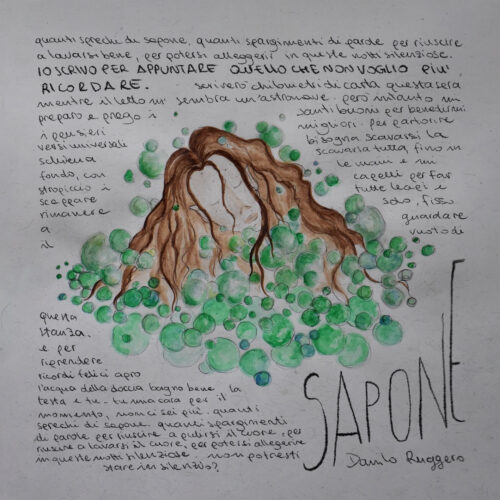 quanti sprechi di sapone. quanti spargimenti di parole per riuscire
a lavarsi bene, per potersi alleggerir in queste notti silenziose.
IO SCRIVO PER APPUNTARE QUELLO CHE NON VOGLIO PIU'
RICORDARE. scriverò chilometri di carta questa sera
mentre il letto mi sembra un'astronave. però intanto mi
preparo e prego i santi buoni per benedirmi
i pensieri migliori. per partorire
versi universali bisogna scavarsi la
schiena scavarla tutta, fino in
fondo, con le mani e mi
stropiccio i capelli per far
scappare tutte le api e
rimanere solo, fisso
a guardare
il vuoto di
questa
stanza.
e per
riprendere
ricordi felici apro
l'acqua della doccia bagno bene la
testa e tu - tu mia cara per il
momento, non ci sei più. quanti
sprechi di sapone. quanti spargimenti
di parole per riuscire a pulirsi il cuore, per
riuscire a lavarsi il cuore, per potersi alleggerire
in queste notti silenziose. non potresti
stare in silenzio?
SAPONE
Danilo Ruggero